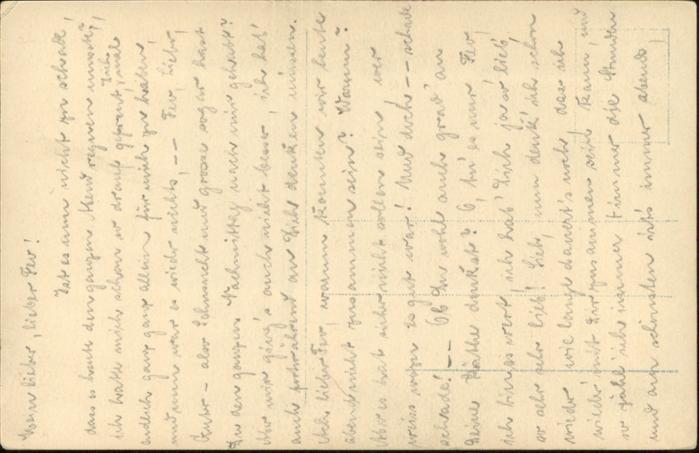 Mein lieber, lieber Fer!
Ist es nun nicht zu schade,
dass es heute den ganzen Abend regnen musste,
ich hatte mich schon so drauf gefreut, Dich mal
endlich ganz ganz allein für mich zu haben,
und nun war es wieder nichts, -- Fer, lieber
guter - aber Sehnsucht und grosse sogar hast
Du den ganzen Nachmittag nach mir gehabt?
Aber mir ging's auch nicht besser, ich hab'
auch fortwährend an Dich denken müssen.
Ach lieber Fer, warum konnten wir heute
abend nicht zusammen sein? Warum?
Aber es hat sicher nicht sollen sein, wer
weiss wozu es gut war! Und doch -- schade
schade! -- Ob Du wohl auch grad' an
Deine Käthe denkst? O, tu' es nur Fer,
ich bin's wert, ich hab' Dich ja so lieb,
so sehr sehr lieb! Sieh, nun denk' ich schon
wieder wie lange dauert's noch, dass ich
wieder mit Dir zusammen sein kann, und
so zähl' ich immer immer die Stunden
und am schönsten ist's immer abends,